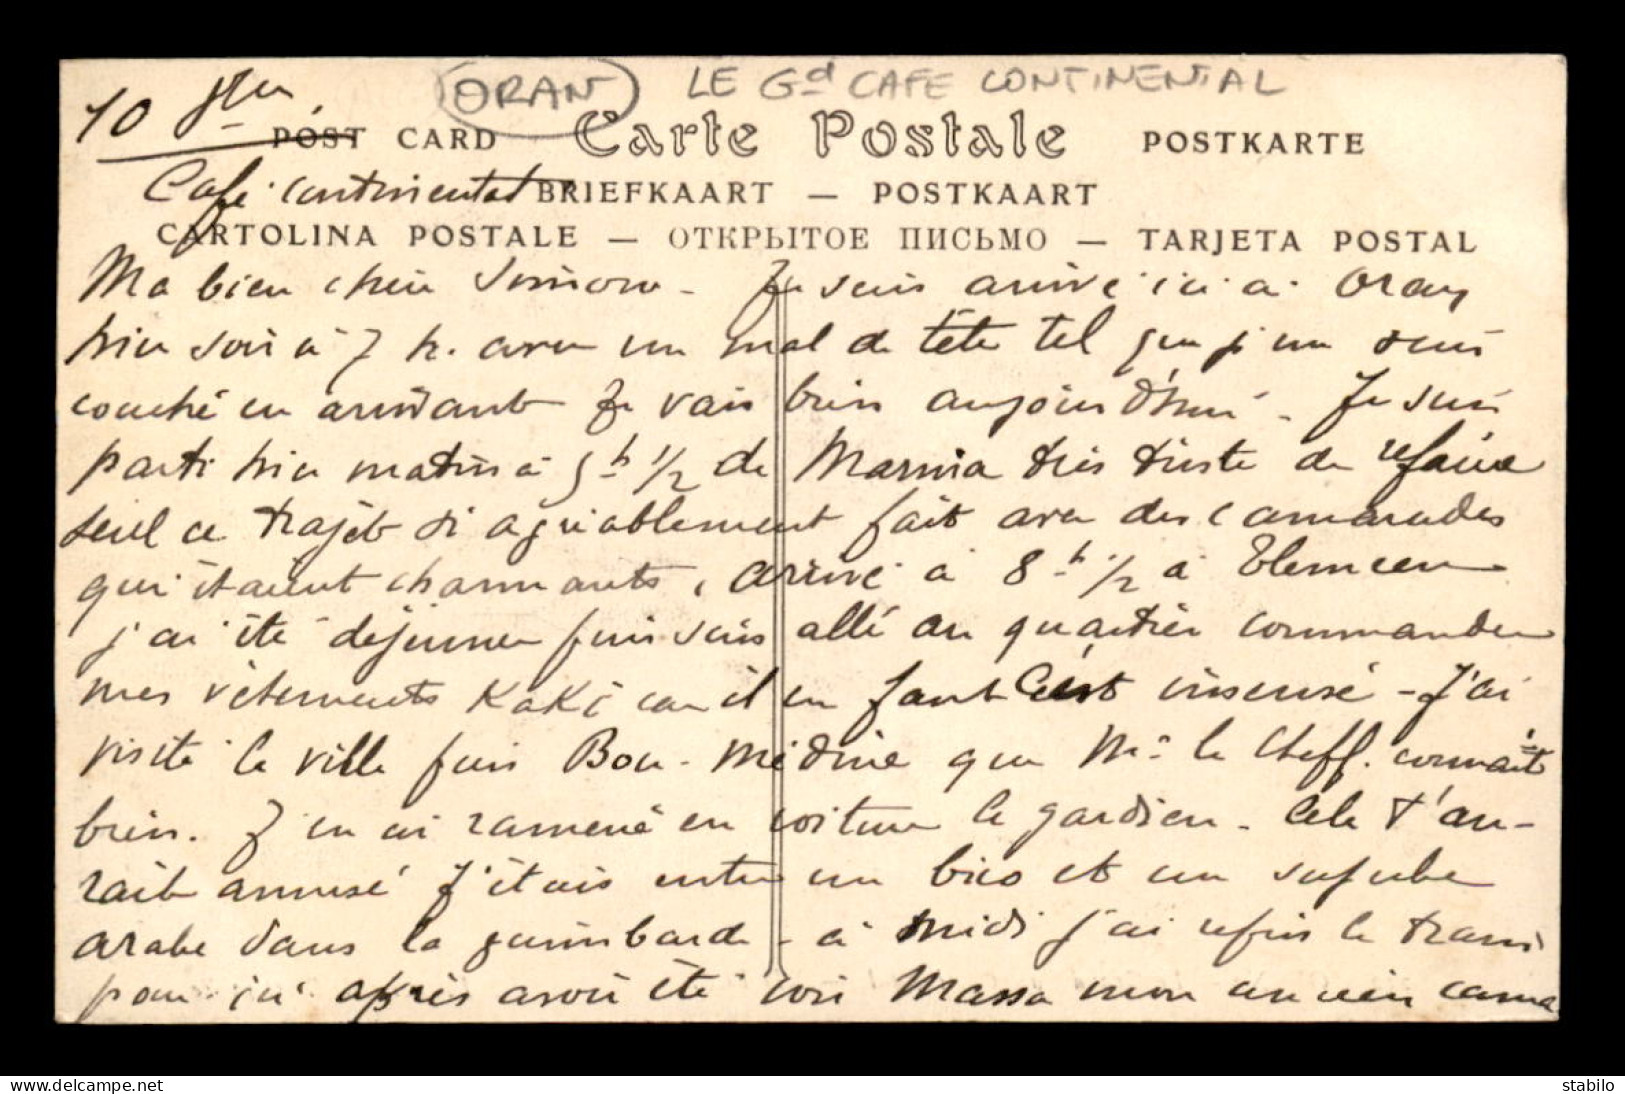 ORAN LE Gd CAFE CONTINENTAL
10
POST CARD Carte Postale POSTKARTE
Café continental BRIEFKAART — POSTKAART
CARTOLINA POSTALE — ОТКРЫТОЕ ПИСЬМО — TARJETA POSTAL
Ma bien chère Simone - Je suis arrivé ici à Oran
hier soir à 7 h. avec un mal de tête tel que je me suis
couché en arrivant Je vais bien aujourd'hui - Je suis
parti hier matin à 5h 1/2 de Marnia très triste de refaire
seul ce trajet si agréablement fait avec des camarades
qui étaient charmants, arrivé à 8h 1/2 à Tlemcen
j'ai été déjeuner puis suis allé au quartier commander
mes vêtements Kaki car il en faut C'est insensé - J'ai
visité la ville puis Bou-médine que Mr le Cheff. connait
bien. J'en ai ramené en voiture le gardien - Cela t'au-
rait amusé J'étais entre un bico et un superbe
arabe dans la guimbarde - à midi j'ai repris le train
pour ici après avoir été voir Massa mon ancien cama
stabilo
www.delcampe.net